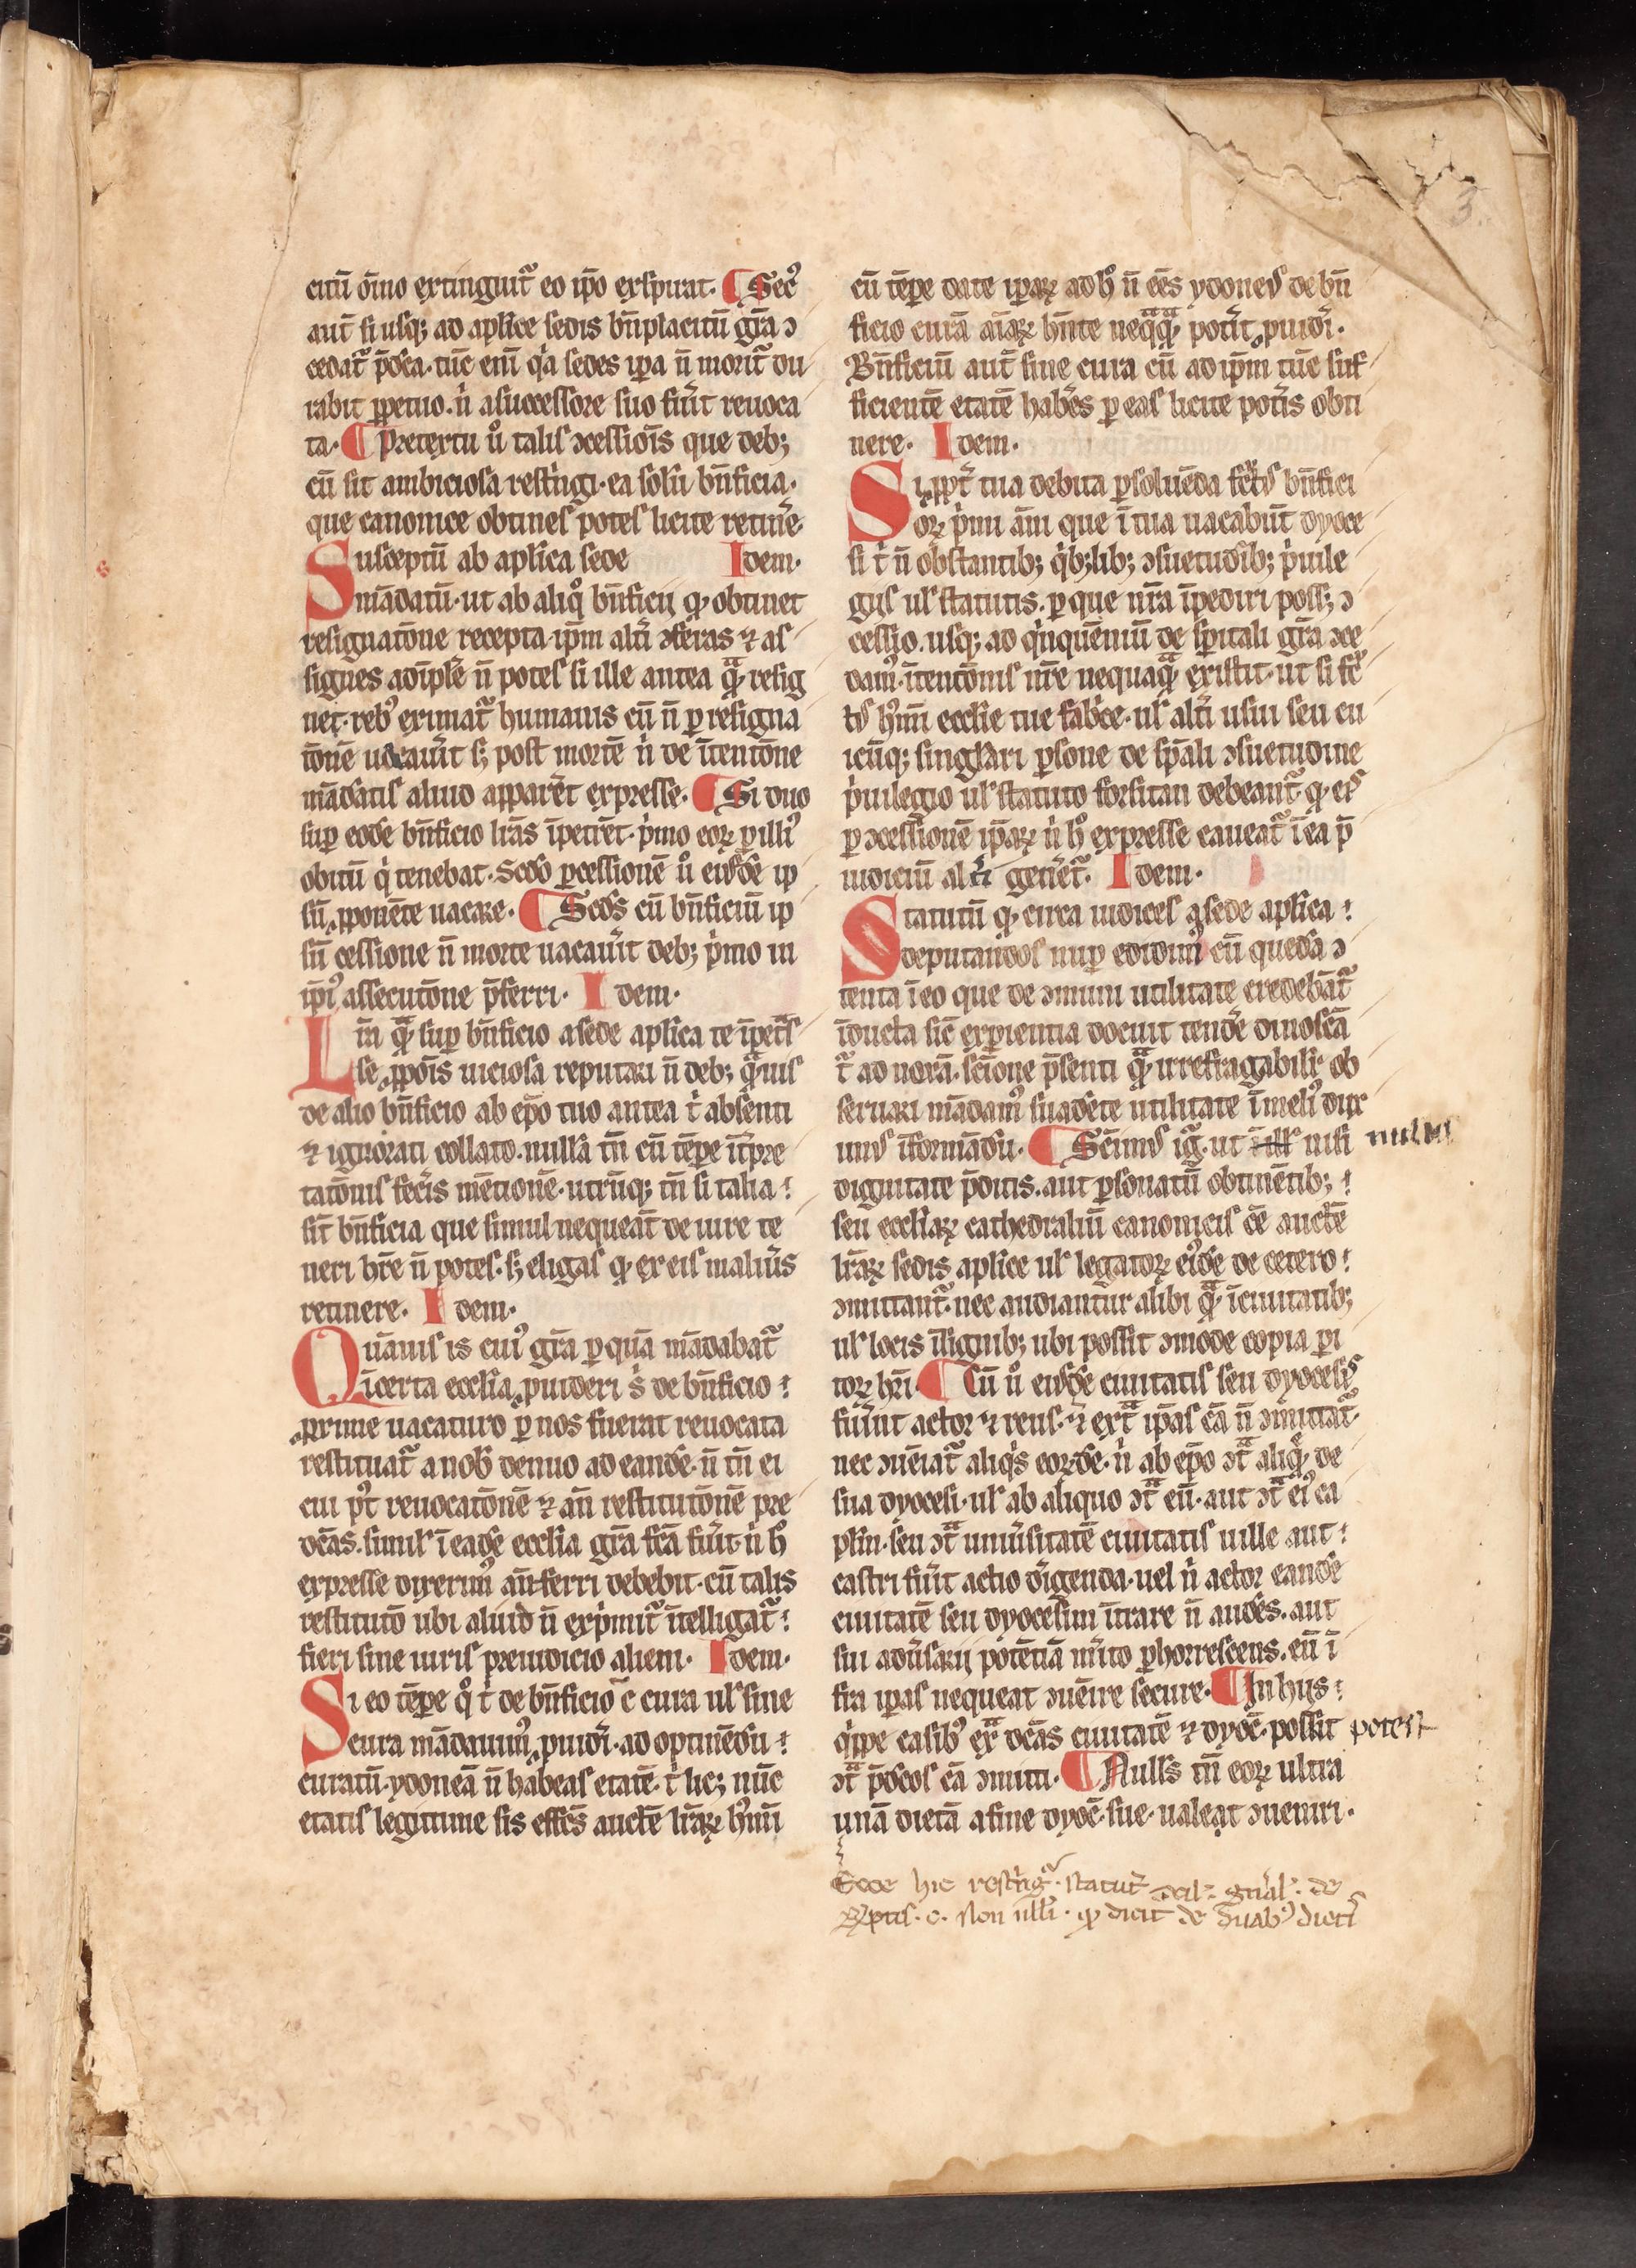 citū oīno extinguit᷑ eo ip̄o exspirat. ¶ Sec᷒
aut̄ si usq; ad aplice sedis bn̄placitū gr̄a ɔ
cedat᷑ p̄dc̄a. tūc eni̅ q̇a sedes ip̄a n̄ morit᷑ du
rabit ꝑpetuo. n̊ a successore suo fu̾it reuoca
ta. ¶ Pretextu u̾o talis ɔcessiōis que deb;
cū sit ambiciosa restri̾gi. ea solū bn̄ficia.
que canonice obtines potes licite retine̾.
Susceptū ab aplica sede Idem.
mādatū. ut ab aliq̊ bn̄ficij ꝙ obtinet
resignatōne recepta. ip̄m alt̾i ɔferas ⁊ as
signes adīple̾ n̄ potes si ille antea qͣ̄ resig
net. reb᷒ eximat᷑ humanis cū n̄ ꝑ resigna
tōnē uacau̾it s; post mortē n̊ de ītentōne
mādātis aliud appare̾t expresse. ¶ Si duo
sup̱ eodē bn̄ficio lr̄as īpetre̾t. p̊mo eoꝝ ꝑ illi᷒
obitū q̊ tenebat. Scdo ꝑ cessionē u̾o eiusdē ip̄
sū ꝓponēte uacare. ¶ Scd̄s cū bn̄ficiū ip̄
sū cessione n̄ morte uacau̾it deb; p̊mo in
ip̄i᷒ assecutōne p̄ferri. Idem.
Līa qͣ̄ sup̱ bn̄ficio a sede aplica te īpet̾s
se ꝓpōis uiciosa reputari n̄ deb; qͣ̄uis
de alio bn̄ficio ab ep̄o tuo antea t̊ absenti
⁊ ignorāti collato. nullā tn̄ cū tēpe īt̾pre
tatōnis fec̾is mētionē. utrūq; tn̄ si talia
sīt bn̄ficia que simul nequeāt de iure te
neri hr̄e n̄ potes. s; eligas ꝙ ex eis malu̾is
retinere. Idem.
Quāuis is cui᷒ gr̄a ꝑ quā mādabat᷑
ī certa ecclīa ꝓuideri s̊ de bn̄ficio
primo uacaturo ꝑ nos fuerat reuocata
restituat᷑ a nob̄ denuo ad eandē. n̄ tn̄ ei
cui p̾t reuocatōnē ⁊ an̄ restitutōnē pre
dc̄as. simil̾ ī eadē ecclīa gr̄a fc̄a fu̾it. n̊ h̊
expresse dixerim᷒ an̄ferri debebit. cū talis
restituto ubi aliud n̄ exp̊mit᷑ ītelligat᷑
fieri sine iuris preiudicio alieni. Idem.
Si eo tēpe q̊ t̊ de bn̄ficio c̄ cura ul̾ sine
cura mādauim᷒ ꝓuide̾i. ad optinēdū
curatū. ydoneā n̄ habeas etatē. t̊ lic; nūc
etatis legittime sis effc̄s auctē lr̄aꝝ h᷒mōi
cū tēpe date ip̄aꝝ ad h̊ n̄ ēes ydone᷒ de bn̄
ficio curā aīaꝝ hn̄te neqͣ̄qͣ̄ pote̾it ꝓuide̾i.
Bn̄ficiū aut̄ sine cura cū ad ip̄m tūc suf
ficientē etatē habe̾s ꝑ eas licite pote̾is obti
nere. Idem.
Si ꝓpt̾ tua debita ꝑsoluēda fruct᷒ bn̄fici
oꝝ p̊mi āni que ī tua uacabūt dyoce
si t̊ n̄ obstantib; q̊b;lib; ɔsuetudīb; p̊uile
gijs ul̾ statutis. ꝑ que nr̄a īpediri poss; ɔ
cessio. usq; ad q̊nquēniū de sp̄itali gr̄a ɔce
dam᷒. ītentōnis nr̄e nequaqͣ̄ existit. ut si fru
ct᷒ h᷒mōi ecclīe tue fabrice. ul̾ alt̾i usui seu cu
icūq; singlari ꝑsone de sp̄ali ɔsuetudine
p̊uilegio ul̾ statuto forsitan debeant᷑. ꝙ eis
ꝑ ɔcessionē ip̄aꝝ n̊ h̊ expresse caueat᷑ ī ea p̄
iudiciū alt̾i gene̾ret᷑. Idem.
Statutū ꝙ circa iudices a sede aplica
deputandos nup̱ edidim᷒ cū quedā ɔ
tenta ī eo que de ɔmuni utilitate credebāt᷑
īducta sic̄ exp̱ientia docuit tende̾ dinoscā
t᷑ ad noxā. sc̄ione p̄senti qͣ̄ irrefragabilit̾ ob
seruari mādam᷒ suadēte utilitate ī meli᷒ dux
im᷒ īformādū. ¶ Sc̄im᷒ ig̊. ut null̾ nisi nullis
dignitate p̄ditis. aut ꝑsonatū obtinētib;
seu ecclīaꝝ cathedraliū canonicis cē auctē
lr̄aꝝ sedis aplice ul̾ legatoꝝ ei᷒dē de cetero
ɔmittant᷑. nec audiantur alibi qͣ̄ ī ciuitatib;
ul̾ locis īsignib; ubi possit ɔmode copia ꝑi
toꝝ hr̄i. ¶ Cū u̾o eiusdē ciuitatis seu dyocesis
fu̾int actor ⁊ reus. n̊ extͣ ip̄as cā n̄ ɔmittat᷑.
nec ɔueīat᷑ aliq̊s eoꝝdē. n̊ ab ep̄o ɔtͣ aliquē de
sua dyocesi. ul̾ ab aliquo ɔtͣ eū. aut ɔtͣ ei᷒ ca
plm̄. seu ɔtͣ uniu̾sitatē ciuitatis uille aut
castri fu̾it actio dirigenda. uel n̊ actor eandē
ciuitatē seu dyocesim īt̾re n̄ audēs. aut
sui adu̾sarij potētiā mi̾to ꝑhorrescens. eū ī
fra ip̄as nequeat ɔuēire secure. ¶ In hijs
q̊ppe casib᷒ extͣ dc̄as ciuitatē ⁊ dyoc̄. possit potest
ɔtͣ p̄dc̄os cā ɔmitti. ¶ Null᷒ tn̄ eoꝝ ultra
unā dietā a fine dyoc̄. sue. ualeat ɔueniri.
Ecce hic rest̊ngit᷑. statut̄ ɔcil̾. gn̾al̾. de
r̄sc̾ptis. c. Non nulli. ꝙ dicit de duab᷒ dietis